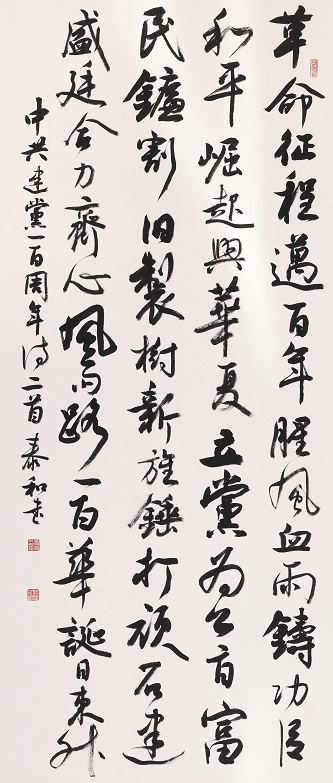 革命征程邁百年腥風血雨鑄功臣
和平崛起興華夏立黨為公育富
民鐮割旧製樹新旌錘打頑石建
盛廷合力齊心風雨路一百華誕日東升
中共建黨一百周年詩二首泰和書